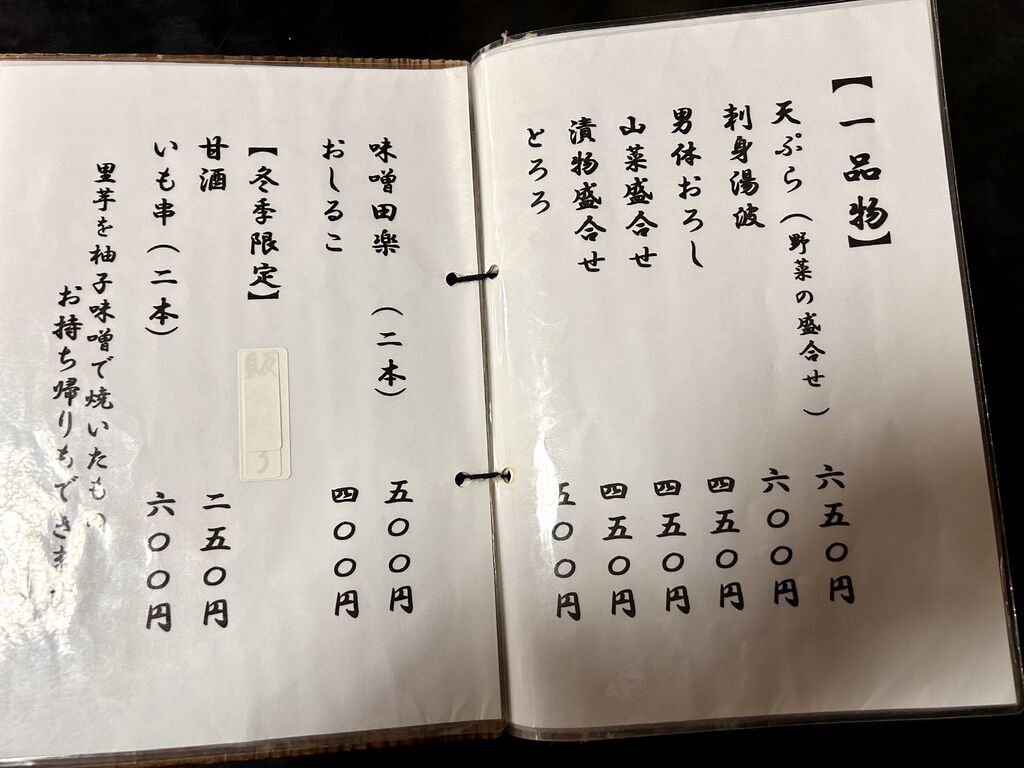 【一品物】
天ぷら（野菜の盛合せ） 六五〇円
刺身湯波 六〇〇円
男体おろし 四五〇円
山菜盛合せ 四五〇円
漬物盛合せ 四五〇円
とろろ 五〇〇円
味噌田楽 （二本） 五〇〇円
おしるこ 四〇〇円
【冬季限定】
甘酒 二五〇円
いも串（二本） 六〇〇円
里芋を柚子味噌で焼いたもの
お持ち帰りもできま